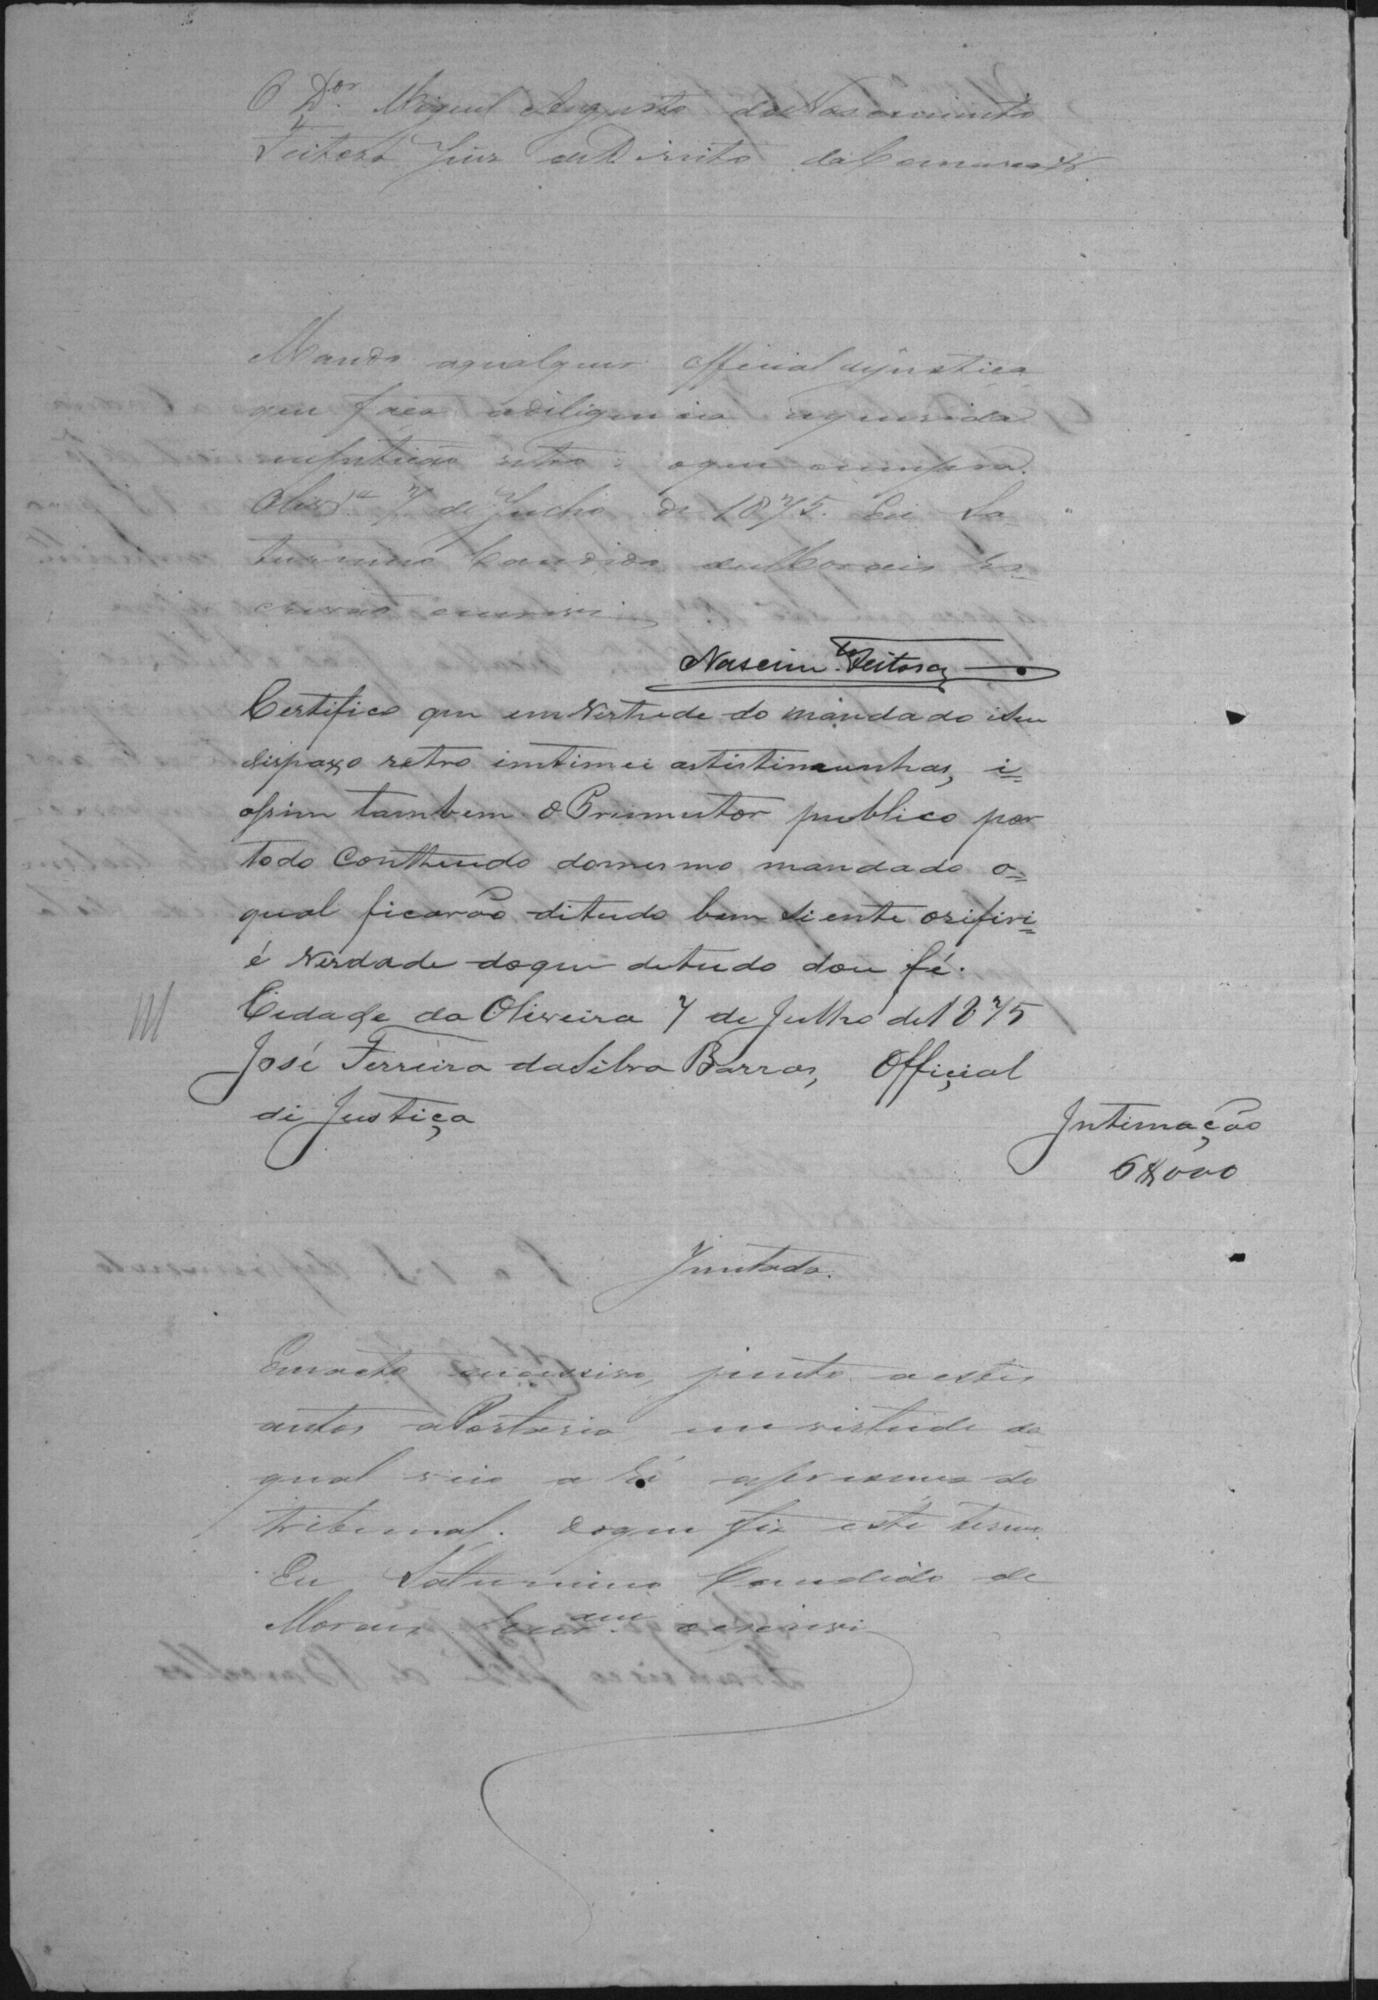 O D.or Miguel Augusto do Nascimento
Feitosa Juiz de Direito da Comarca &.
Mando aqualquer official dejustiça
que faça adiligencia requerida
napetição retro: oque cumpra.
Olivr.a 7 de Julho de 1875. Eu Sa-
turnino Candido de Moraes Es-
crivão escrevi
Nascim.to Feitosa
Certifico que em Vertude do mandado iseu
dispaxo retro intimei astistimunhas, i=
assim tambem o Primutor publico por
todo Contheudo domesmo mandado o=
qual ficarão ditudo bem siente orifiri=
é Verdade doque detudo dou fé.
Cidade da Oliveira 7 de Julho de 1875
José Ferreira daSilva Barros, Official
di Justiça
Intimação
6$000
Juntada.
Emacto successivo, junto a estes
autos aPortaria em virtude da
qual veio a Ré apresença do
tribunal. Doque fiz este termo.
Eu Saturnino Candido de
Moraes Escr.am escrevi